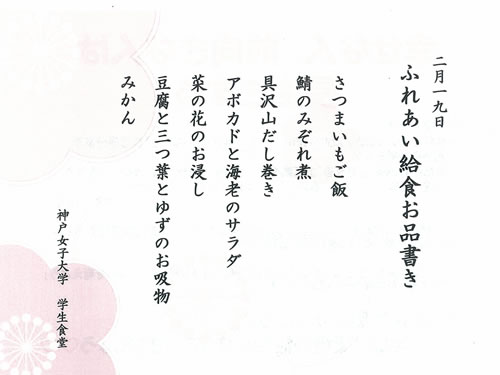 二月一九日
ふれあい給食お品書き
さつまいもご飯
鯖のみぞれ煮
具沢山だし巻き
アボカドと海老のサラダ
菜の花のお浸し
豆腐と三つ葉とゆずのお吸物
みかん
神戸女子大学 学生食堂